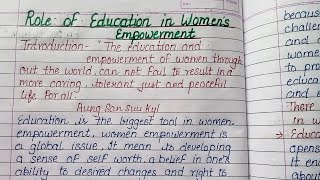 Role of Education in Women's
Empowerment
Introduction- "The Education and
empowerment of women through
out the world, can not Fail to result in a
more caring, tolerant Just and peaceful
life For all.
Aung San suu kyi
Education ,is the biggest tool in women
empowerment, women empowerment is
a global issue, It mean to developing
a sense of self worth, a belief in one's
ability to desired changes and right to
becaus
challe
and
women
to pro
educ
and e
There
in w
→ Educa
opens
It en
about